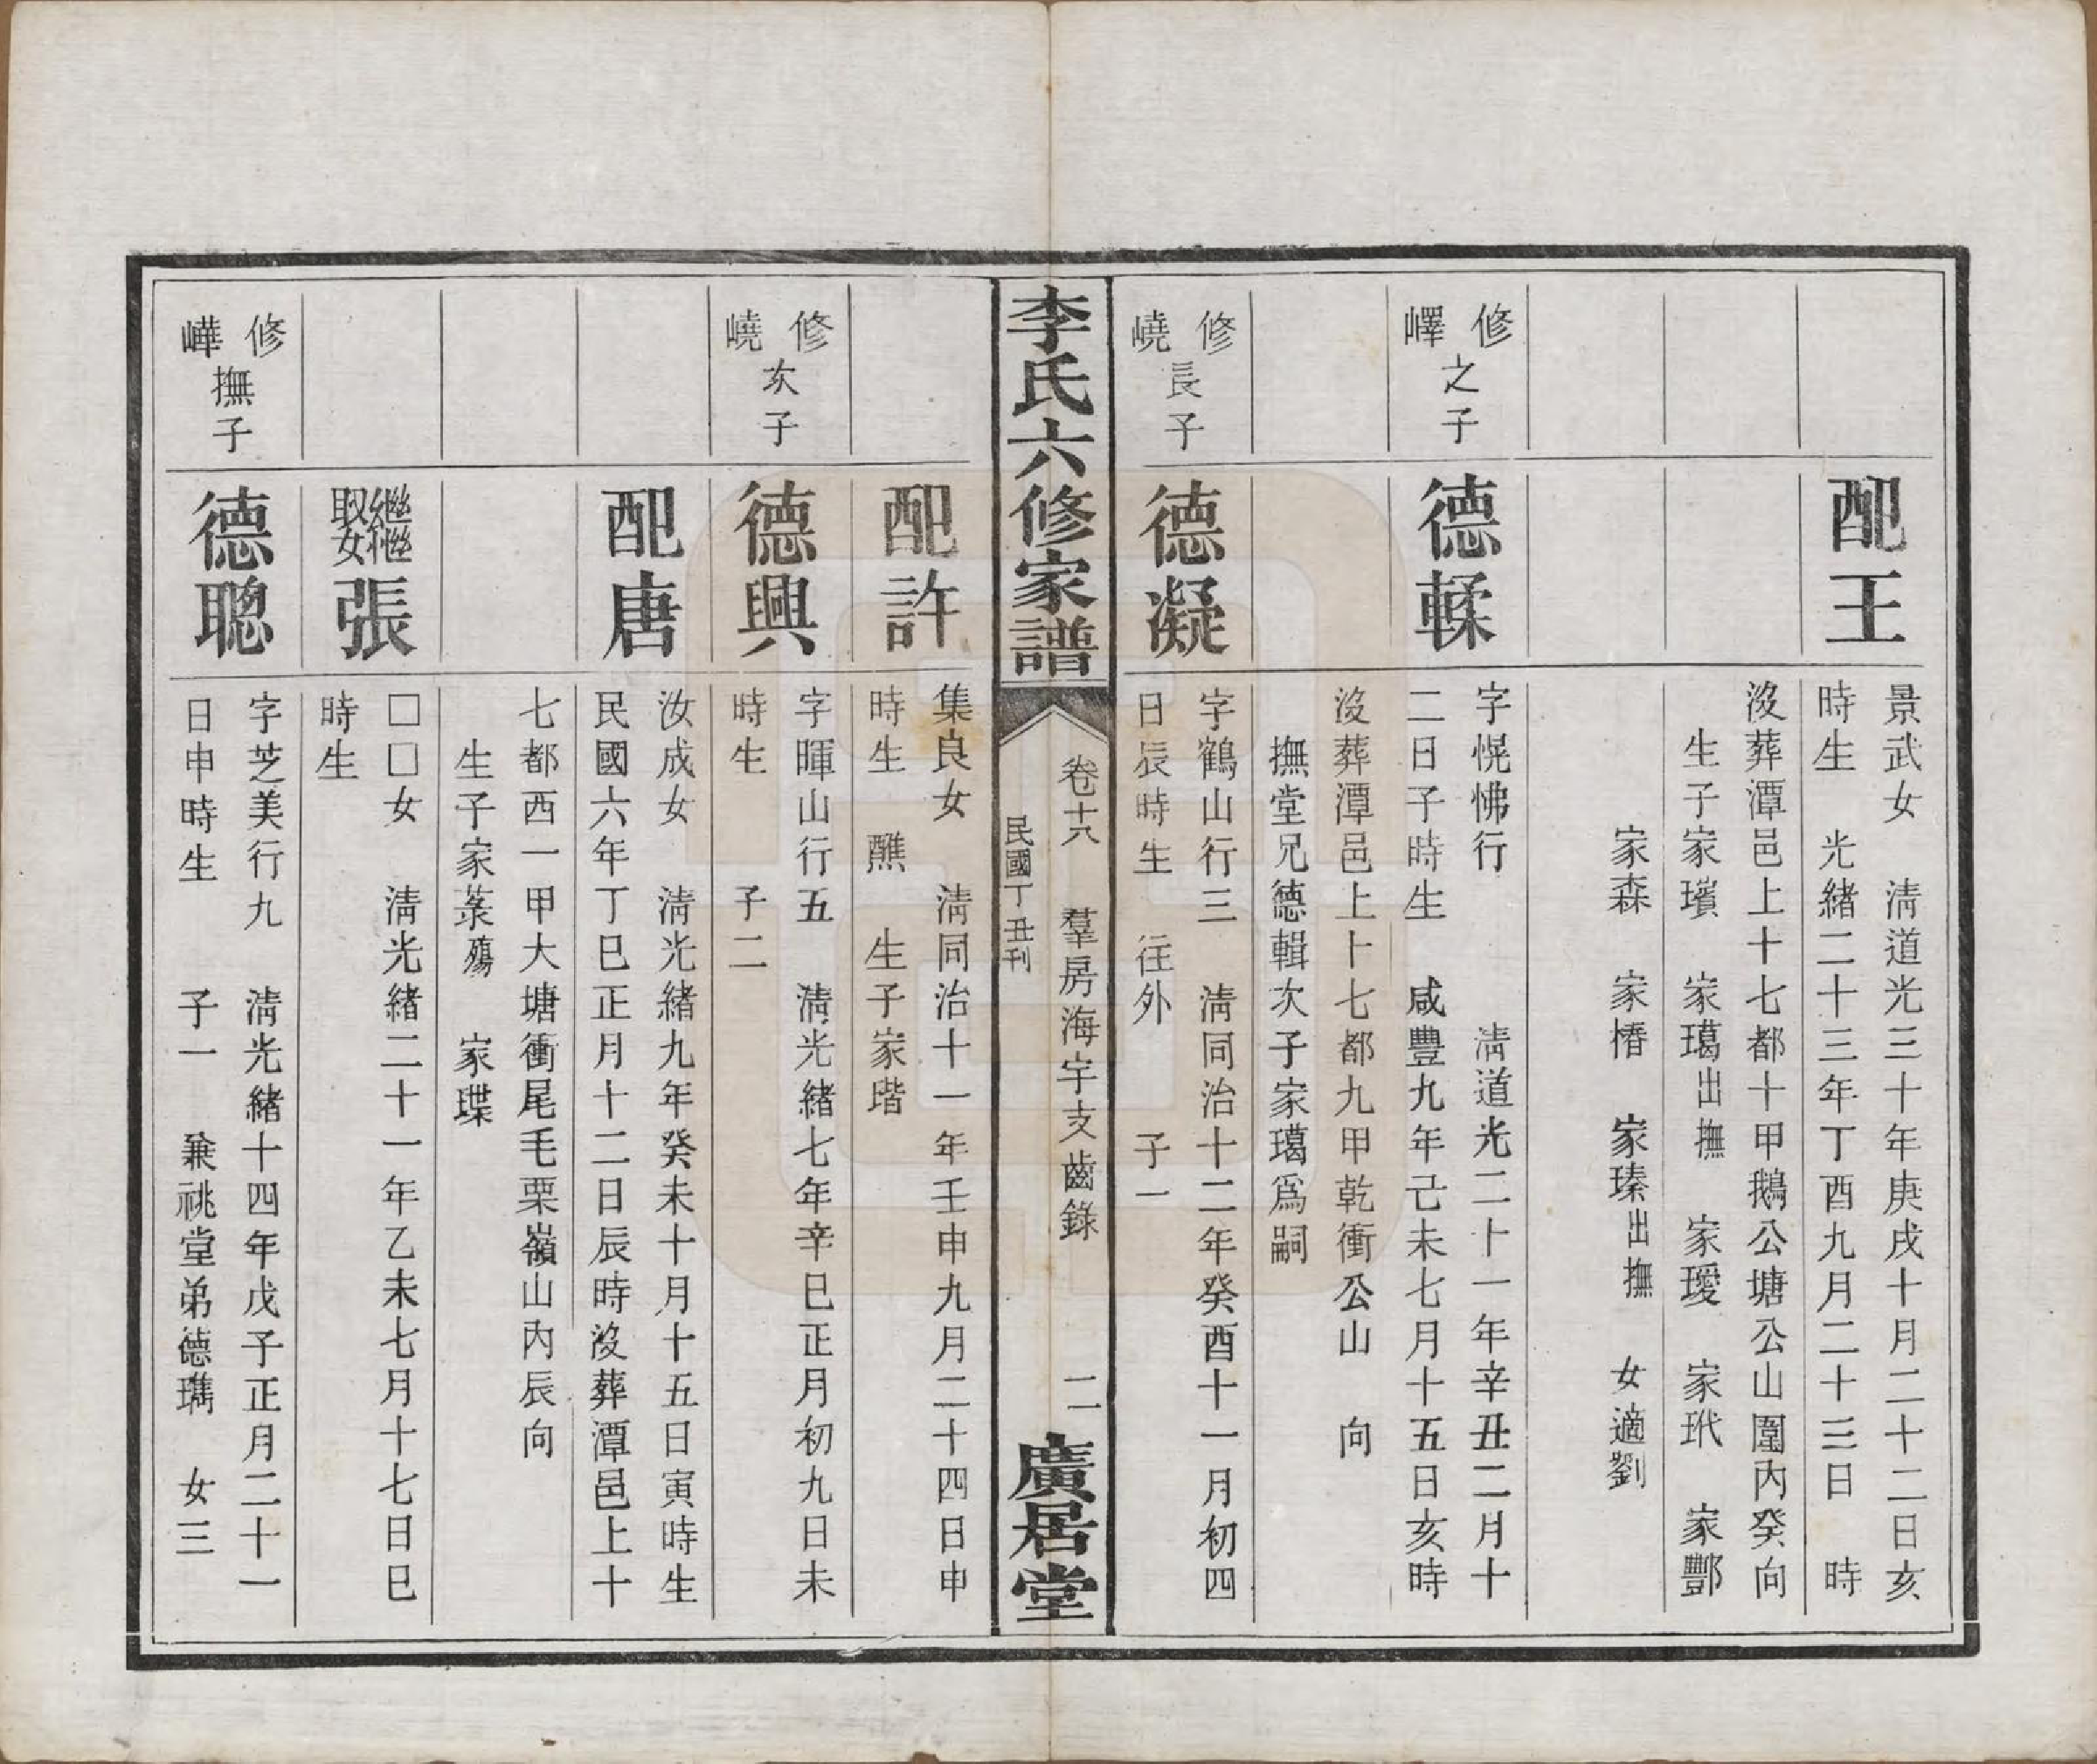 配王
景武女　淸道光三十年庚戌十月二十二日亥
時生　光緒二十三年丁酉九月二十三日　時
沒葬潭邑上十七都十甲鵝公塘公山圍內癸向
生子家璸　家璣出撫　家璦　家玳　家酆
家森　家椿　家瑧出撫　女適劉
修嶧之子
德輮
字幌怫行　　淸道光二十一年辛丑二月十
二日子時生　咸豐九年己未七月十五日亥時
沒葬潭邑上十七都九甲乾衝公山　向
撫堂兄德輯次子家璣爲嗣
修嶢長子
德凝
字鶴山行三　淸同治十二年癸酉十一月初四
日辰時生　往外　　子一
李氏六修家譜
卷十六　羣房海宇支齒錄　二
民國丁丑刊
廣居堂
配許
集良女　淸同治十一年壬申九月二十四日申
時生　醮　生子家瑎
修嶢次子
德興
字暉山行五　淸光緒七年辛巳正月初九日未
時生　　子二
配唐
汝成女　淸光緒九年癸未十月十五日寅時生
民國六年丁巳正月十二日辰時沒葬潭邑上十
七都西一甲大塘衝尾毛栗嶺山內辰向
生子家菉殤　家瑈
繼娶繼女張
□□女　淸光緒二十一年乙未七月十七日巳
時生
修嶂撫子
德聰
字芝美行九　淸光緒十四年戊子正月二十一
日申時生　　子一　兼祧堂弟德瓗　女三